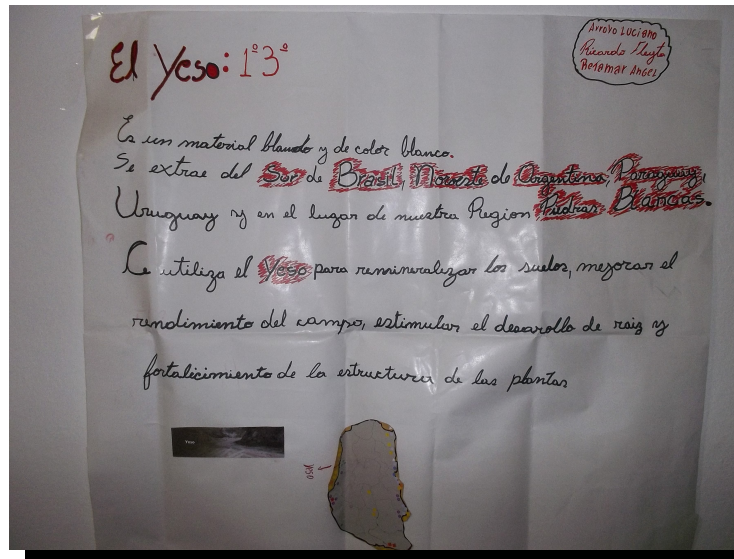 El Yeso: 1º3ª
Arroyo Luciano
Ricardo
Betemar Angel
Es un material blando y de color blanco.
Se extrae del Sur de Brasil, Noreste de Argentina, Paraguay,
Uruguay y en el lugar de nuestra Region Piedras Blancas.
Ce utiliza el Yeso para remineralizar los suelos, mejorar el
rendimiento del campo, estimular el desarollo de raiz y
fortalicimiento de la estructura de las plantas
Yeso
yeso